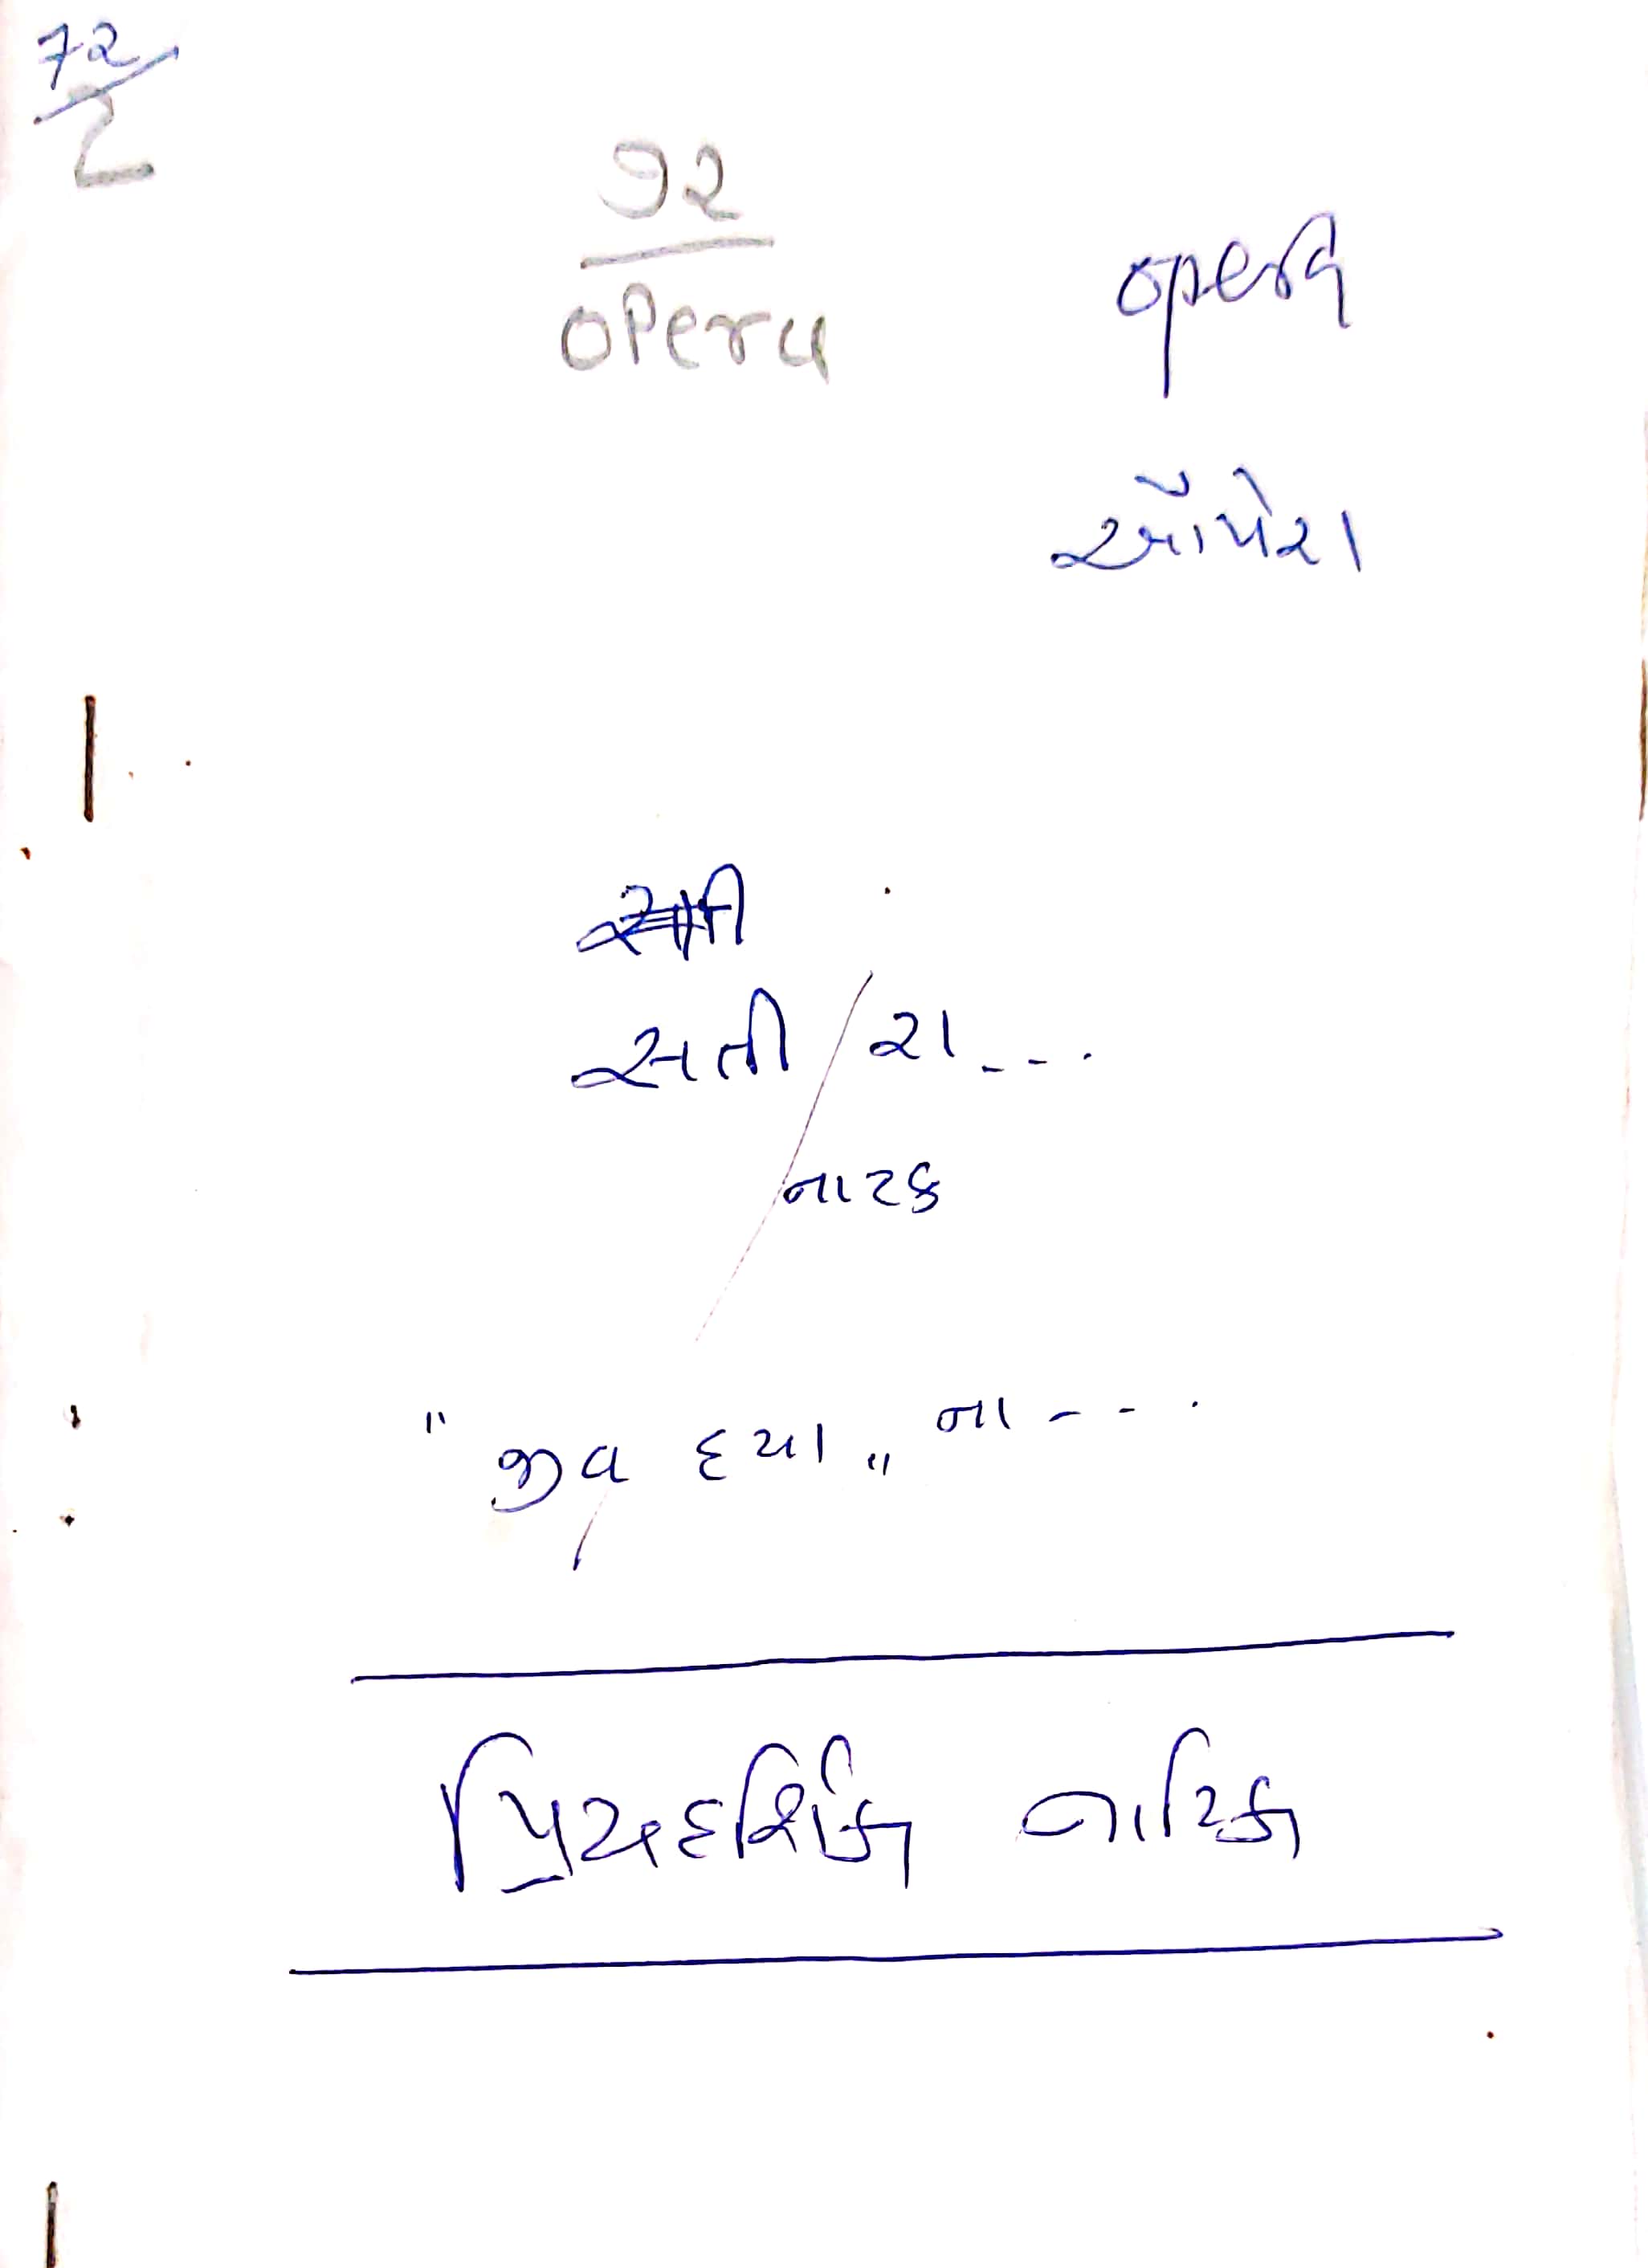 72
૮
૭૨
opera
opera
ઓપેરા
સતી / રા---
નાટક
" જીવ દયા " ના ---
પ્રિયદર્શિકા નાટિકા